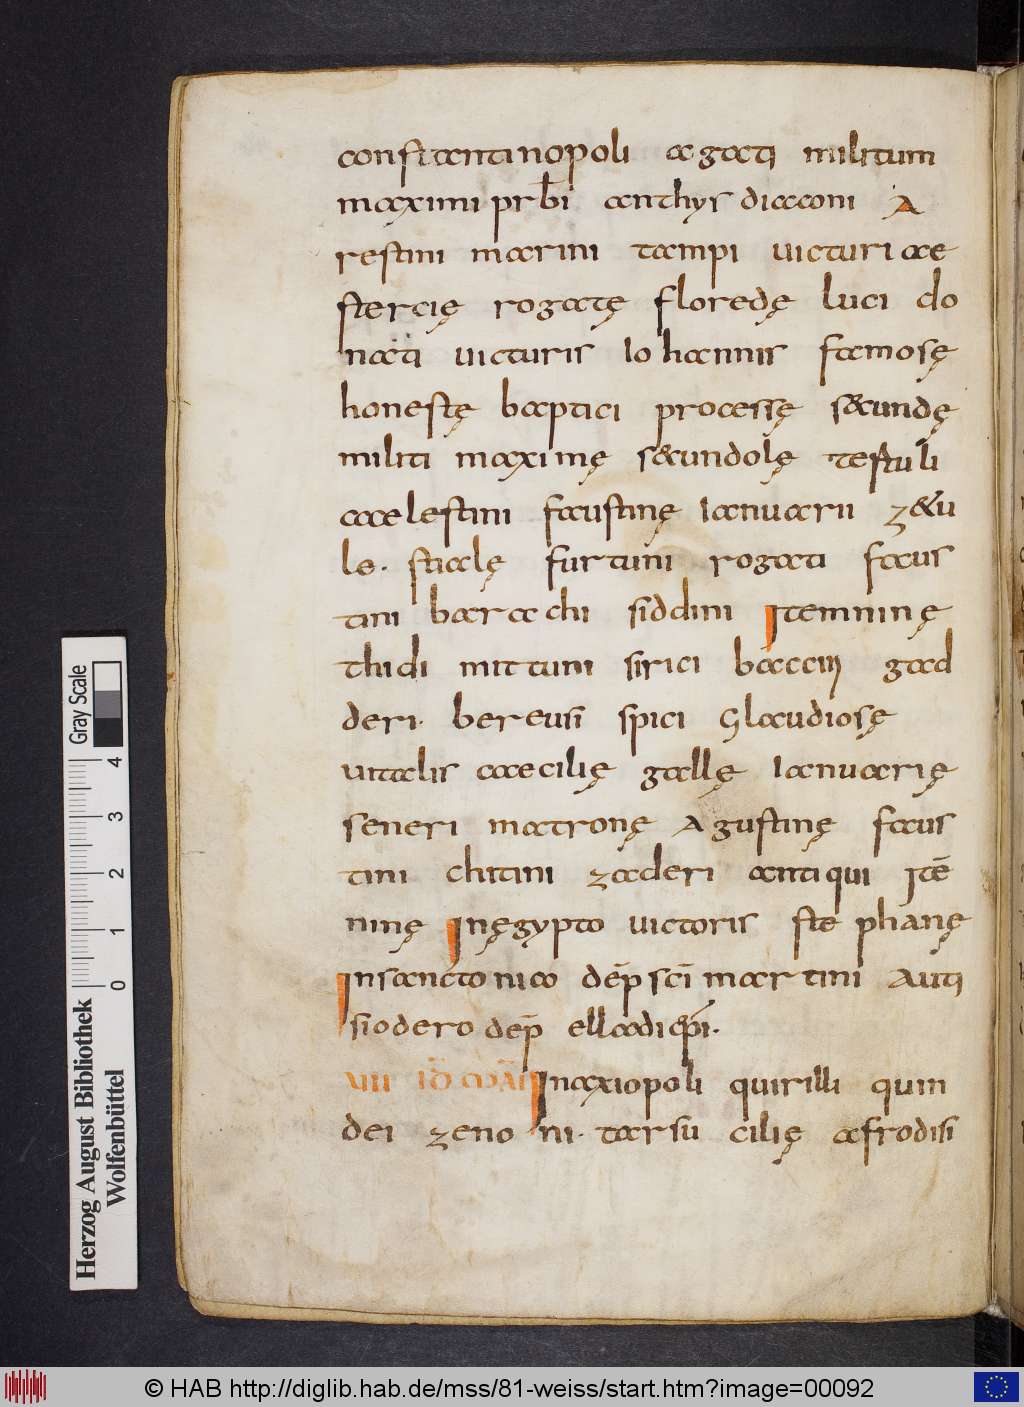 constantinopoli agati militum
maximi prb̄i anthys diaconi A
restini marini tampi uicturi ae
stercię rogatę floredę luci do
nati uicturis Iohannis famosę
honestę baptici processę s&undę
militi maximę s&undolę testuli
caelestini faustinę Ianuarii z&u
le. stialę furtuni rogati faus
tini barachi siddini Item ninę
thidi mittuni sirici bacciii gad
deri. bereusi spici Glaudiosę
uitalis caecilię gallę Ianuarię
seneri matronę Agustinę faus
tini chitini zaderi antiqui Itē
ninę Inęgypto uictoris stephanę
Insanctonico dep̄ scī martini Auti
siodero dep̄ elladi ep̄i.
VII ID̄ MAI Inaxiopoli quirilli quin
dei zenoni. tarsu cilię afrodisi
Gray Scale
0 1 2 3 4
Herzog August Bibliothek
Wolfenbüttel
© HAB http://diglib.hab.de/mss/81-weiss/start.htm?image=00092